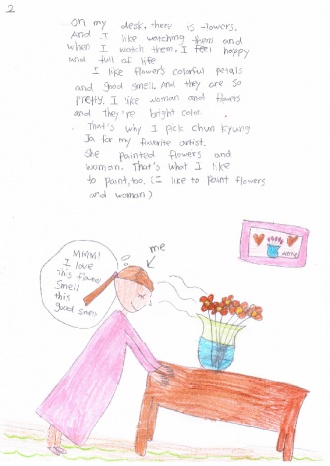 2
on my desk, there is flowers.
And I like watching them and
when I watch them, I feel happy
and full of life
I like flower's colorful petals
and good smell. And they are so
pretty. I like woman and flowers
and they're bright color.
That's why I pick Chun Kyung
Ja for my favorite artist.
She painted flowers and
woman. That's what I like
to paint, too. (I like to paint flowers
and woman)
me
MMM!
I love
this flower
smell
this
good smell